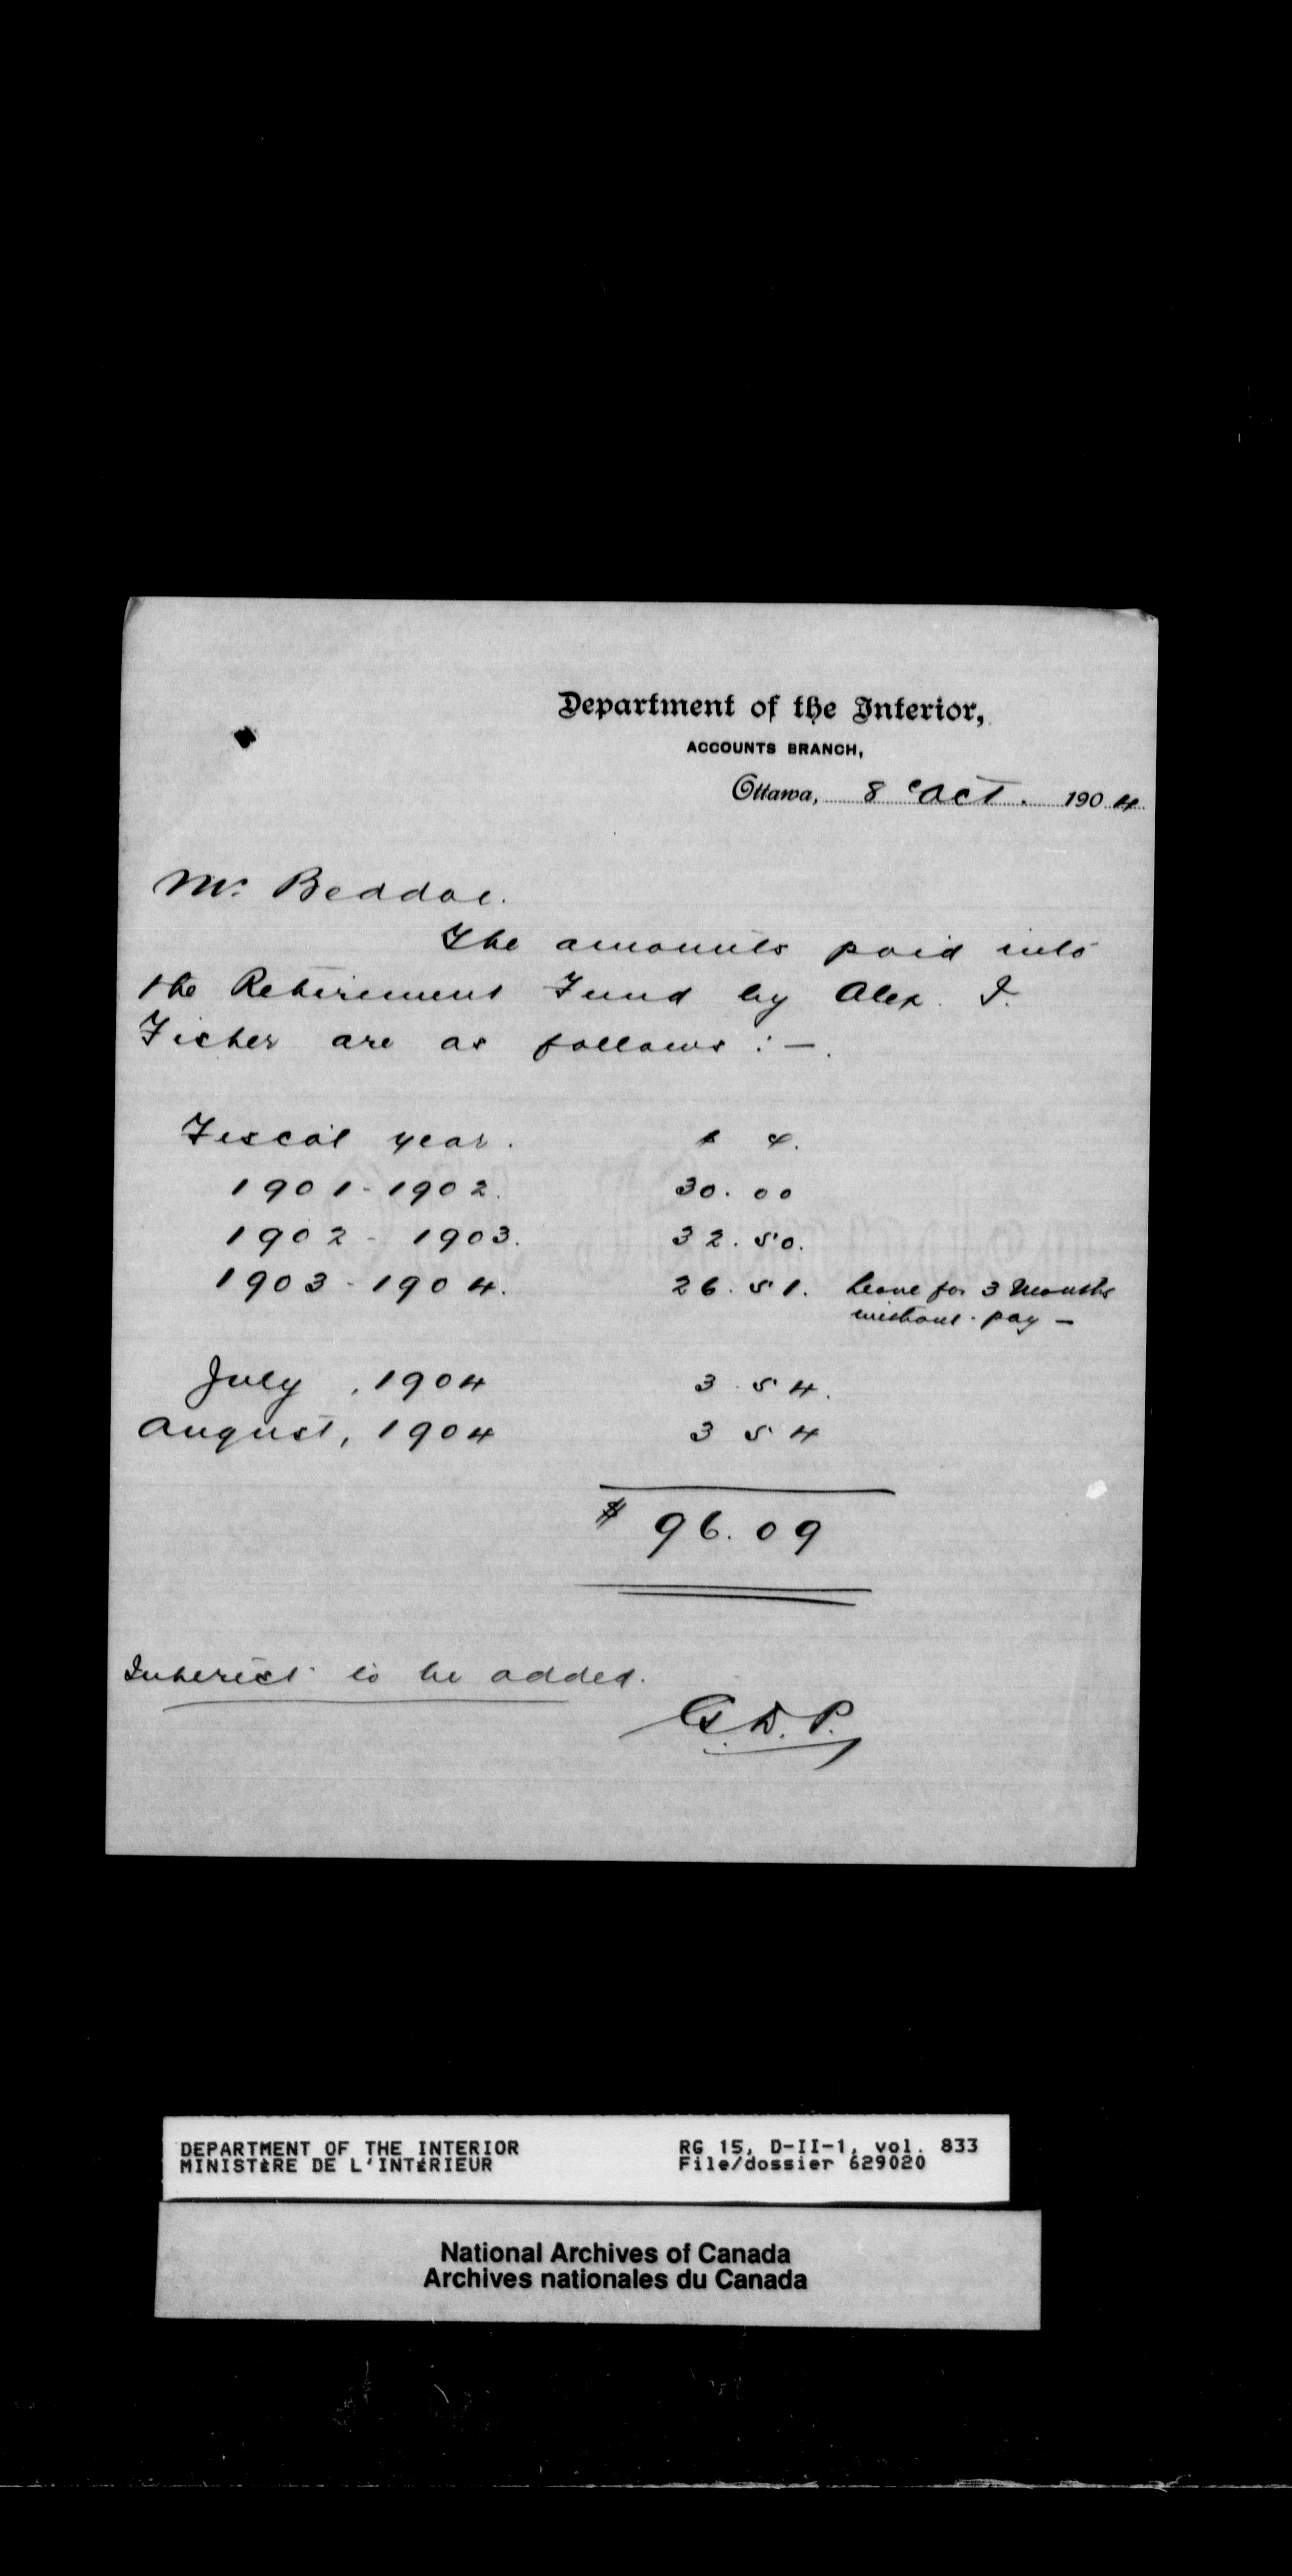 Department of the Interior,
ACCOUNTS BRANCH,
Ottawa, 8 Oct. 1904
Mr. Beddoe.
The amounts paid into
the Retirement Fund by Alex. I.
Fisher are as follows :—.
Fiscal year. $ ¢.
1901-1902. 30.00
1902-1903. 32.50.
1903-1904. 26.51. Leave for 3 Months
without pay —
July, 1904 3.54.
August, 1904 3 54
$ 96.09
Interest to be added.
G.D.P.
DEPARTMENT OF THE INTERIOR RG 15, D-II-1, vol. 833
MINISTÈRE DE L'INTÉRIEUR File/dossier 629020
National Archives of Canada
Archives nationales du Canada